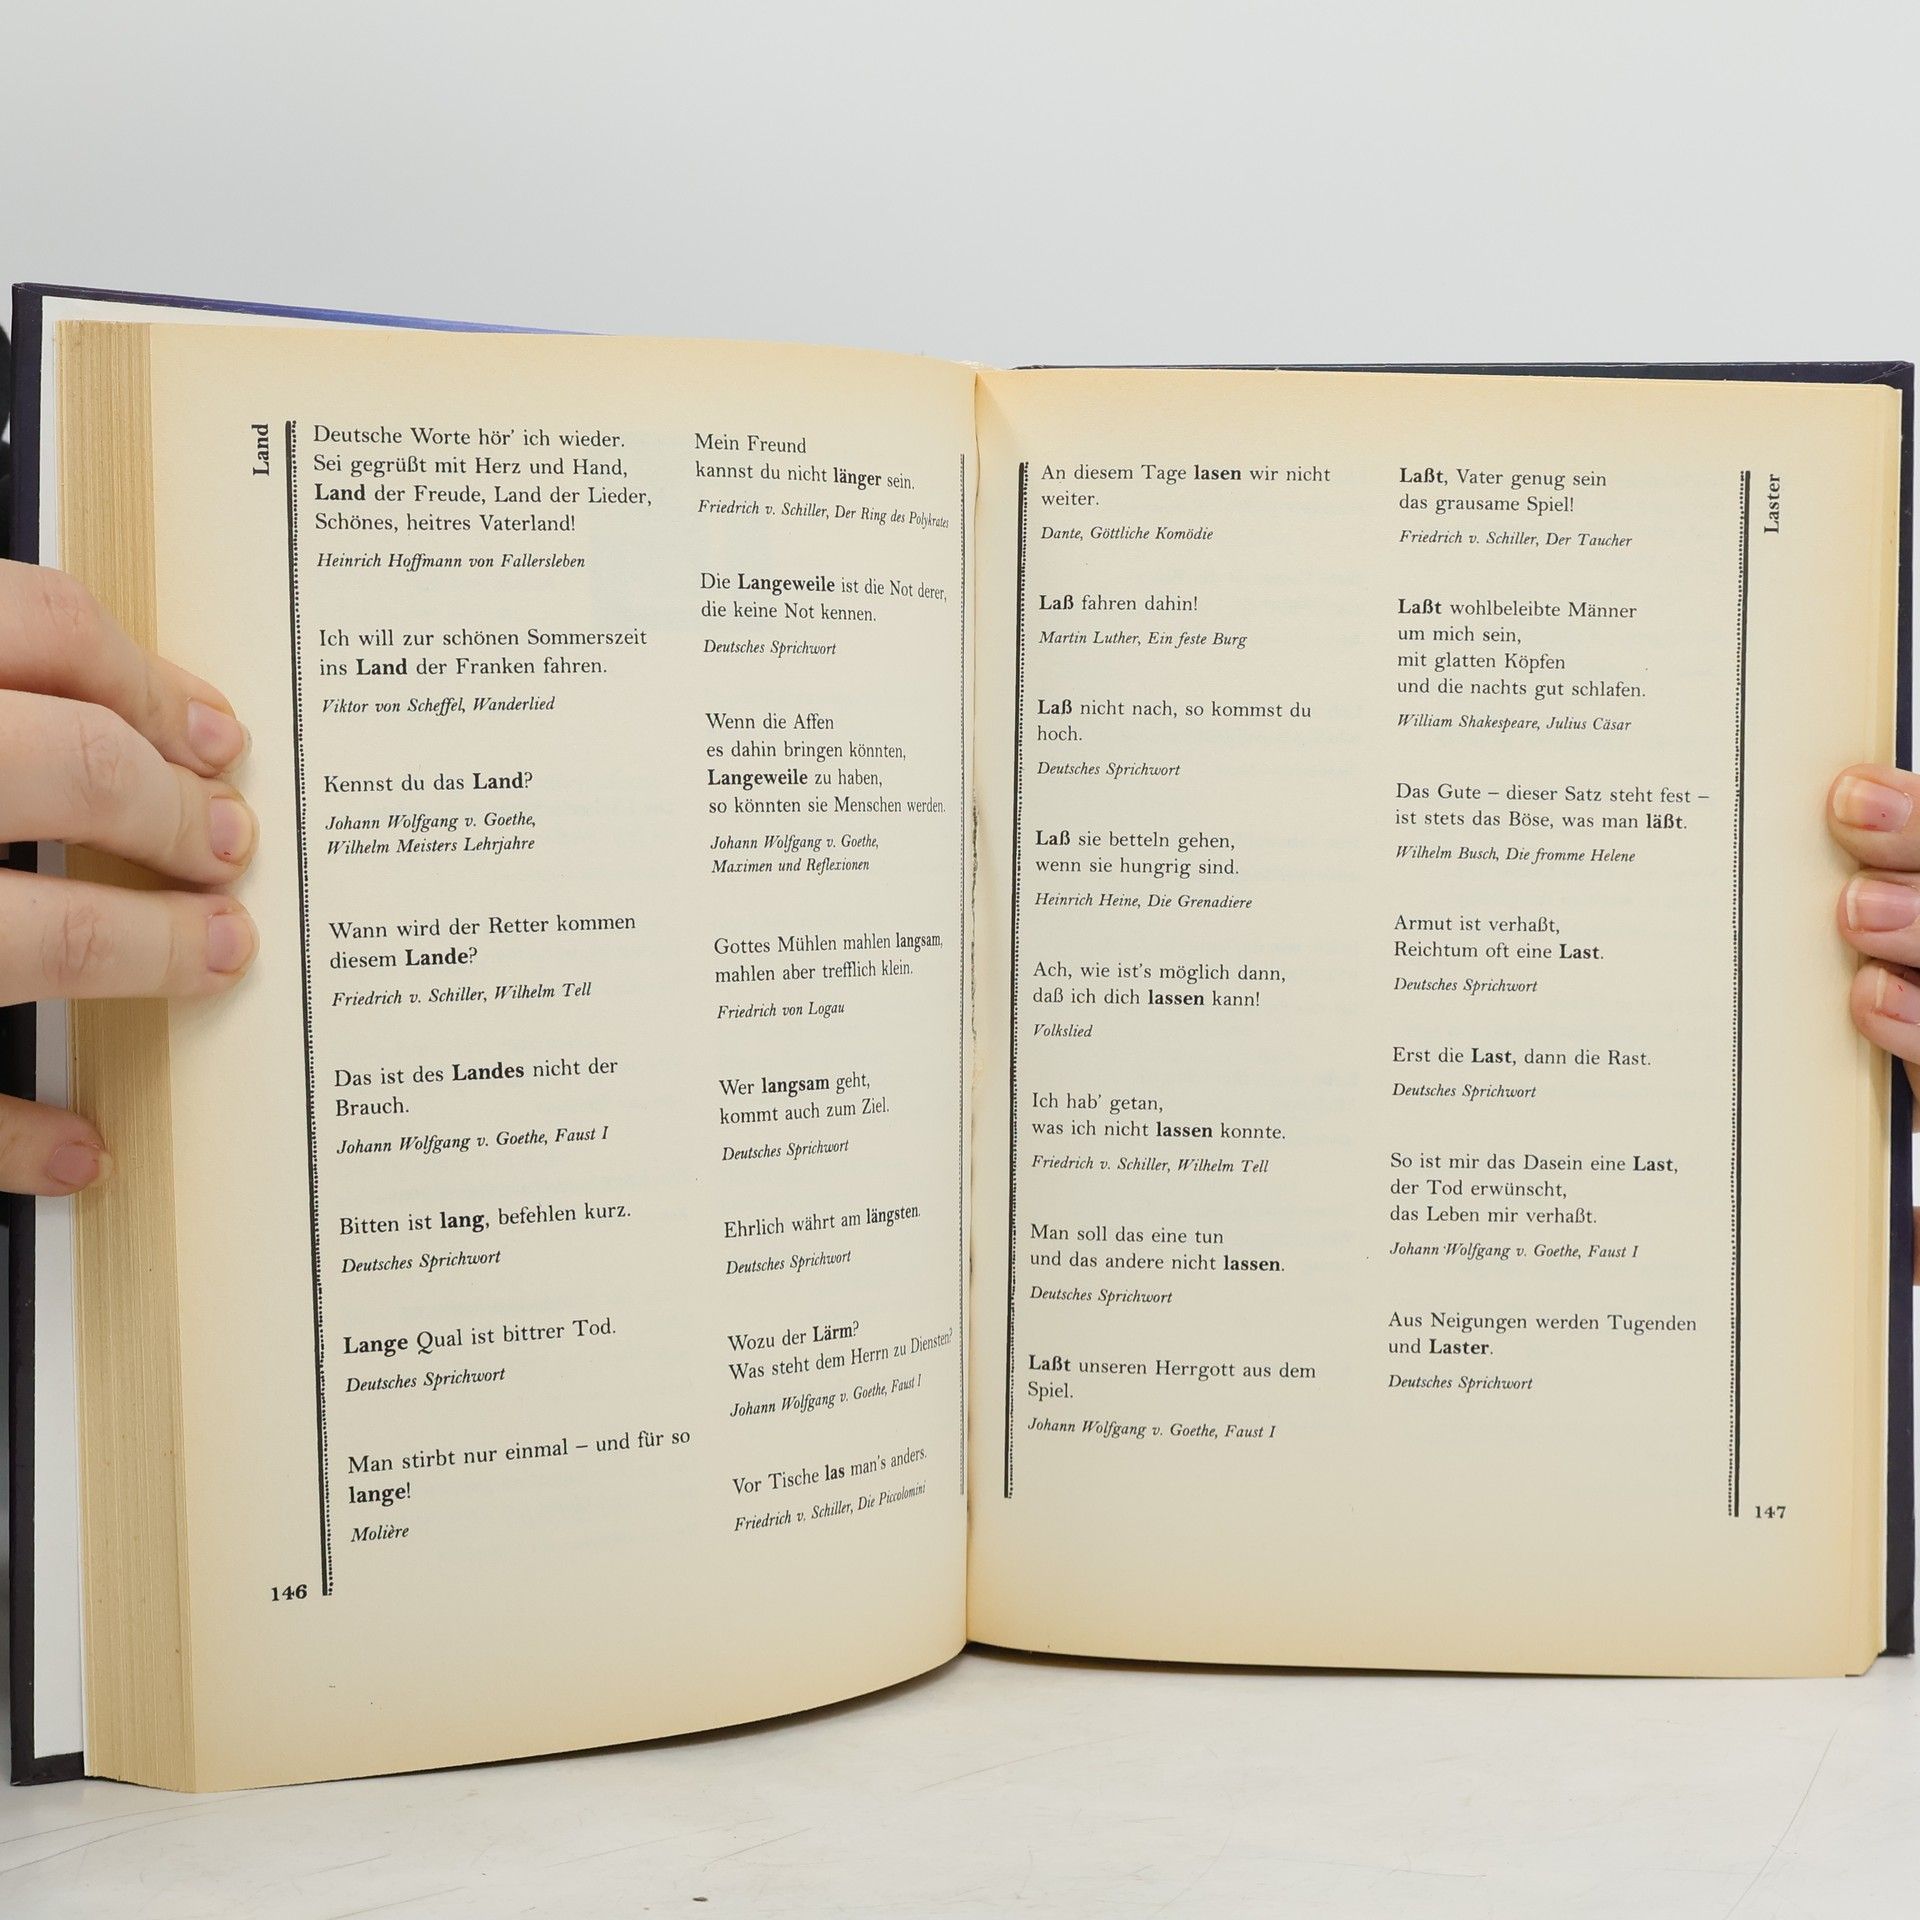 Land
Deutsche Worte hör' ich wieder.
Sei gegrüßt mit Herz und Hand,
Land der Freude, Land der Lieder,
Schönes, heitres Vaterland!
Heinrich Hoffmann von Fallersleben
Ich will zur schönen Sommerszeit
ins Land der Franken fahren.
Viktor von Scheffel, Wanderlied
Kennst du das Land?
Johann Wolfgang v. Goethe,
Wilhelm Meisters Lehrjahre
Wann wird der Retter kommen
diesem Lande?
Friedrich v. Schiller, Wilhelm Tell
Das ist des Landes nicht der
Brauch.
Johann Wolfgang v. Goethe, Faust I
Bitten ist lang, befehlen kurz.
Deutsches Sprichwort
Lange Qual ist bittrer Tod.
Deutsches Sprichwort
Man stirbt nur einmal – und für so
lange!
Molière
146
Mein Freund
kannst du nicht länger sein.
Friedrich v. Schiller, Der Ring des Polykrates
Die Langeweile ist die Not derer,
die keine Not kennen.
Deutsches Sprichwort
Wenn die Affen
es dahin bringen könnten,
Langeweile zu haben,
so könnten sie Menschen werden.
Johann Wolfgang v. Goethe,
Maximen und Reflexionen
Gottes Mühlen mahlen langsam,
mahlen aber trefflich klein.
Friedrich von Logau
Wer langsam geht,
kommt auch zum Ziel.
Deutsches Sprichwort
Ehrlich währt am längsten.
Deutsches Sprichwort
Wozu der Lärm?
Was steht dem Herrn zu Diensten?
Johann Wolfgang v. Goethe, Faust I
Vor Tische las man's anders.
Friedrich v. Schiller, Die Piccolomini
An diesem Tage lasen wir nicht
weiter.
Dante, Göttliche Komödie
Laß fahren dahin!
Martin Luther, Ein feste Burg
Laß nicht nach, so kommst du
hoch.
Deutsches Sprichwort
Laß sie betteln gehen,
wenn sie hungrig sind.
Heinrich Heine, Die Grenadiere
Ach, wie ist's möglich dann,
daß ich dich lassen kann!
Volkslied
Ich hab' getan,
was ich nicht lassen konnte.
Friedrich v. Schiller, Wilhelm Tell
Man soll das eine tun
und das andere nicht lassen.
Deutsches Sprichwort
Laßt unseren Herrgott aus dem
Spiel.
Johann Wolfgang v. Goethe, Faust I
Laßt, Vater genug sein
das grausame Spiel!
Friedrich v. Schiller, Der Taucher
Laßt wohlbeleibte Männer
um mich sein,
mit glatten Köpfen
und die nachts gut schlafen.
William Shakespeare, Julius Cäsar
Das Gute – dieser Satz steht fest –
ist stets das Böse, was man läßt.
Wilhelm Busch, Die fromme Helene
Armut ist verhaßt,
Reichtum oft eine Last.
Deutsches Sprichwort
Erst die Last, dann die Rast.
Deutsches Sprichwort
So ist mir das Dasein eine Last,
der Tod erwünscht,
das Leben mir verhaßt.
Johann Wolfgang v. Goethe, Faust I
Aus Neigungen werden Tugenden
und Laster.
Deutsches Sprichwort
Laster
147